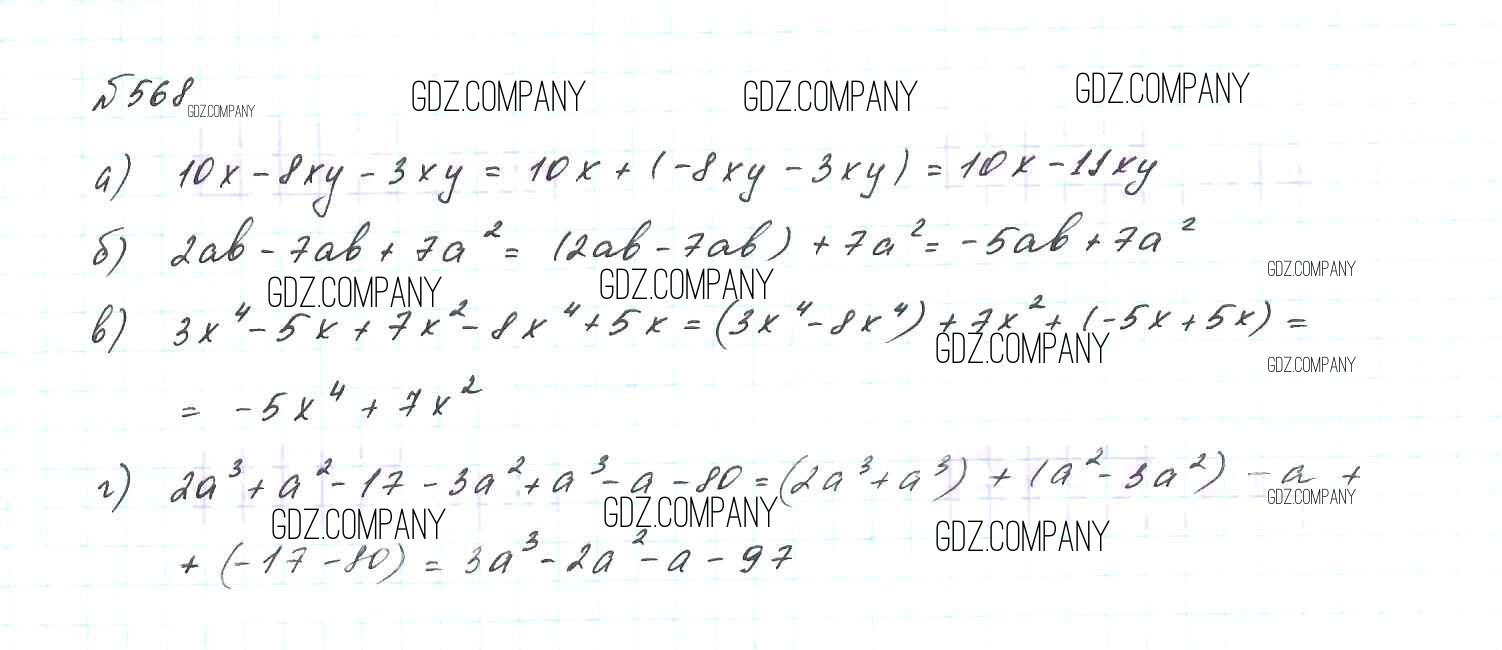 №568
GDZ.COMPANY GDZ.COMPANY GDZ.COMPANY GDZ.COMPANY
а) 10x - 8xy - 3xy = 10x + (-8xy - 3xy) = 10x - 11xy
б) 2ab - 7ab + 7a² = (2ab - 7ab) + 7a² = -5ab + 7a²
GDZ.COMPANY GDZ.COMPANY GDZ.COMPANY
в) 3x⁴ - 5x + 7x² - 8x⁴ + 5x = (3x⁴ - 8x⁴) + 7x² + (-5x + 5x) =
GDZ.COMPANY GDZ.COMPANY
= -5x⁴ + 7x²
г) 2a³ + a² - 17 - 3a² + a³ - a - 80 = (2a³ + a³) + (a² - 3a²) - a +
GDZ.COMPANY GDZ.COMPANY GDZ.COMPANY GDZ.COMPANY
+ (-17 - 80) = 3a³ - 2a² - a - 97